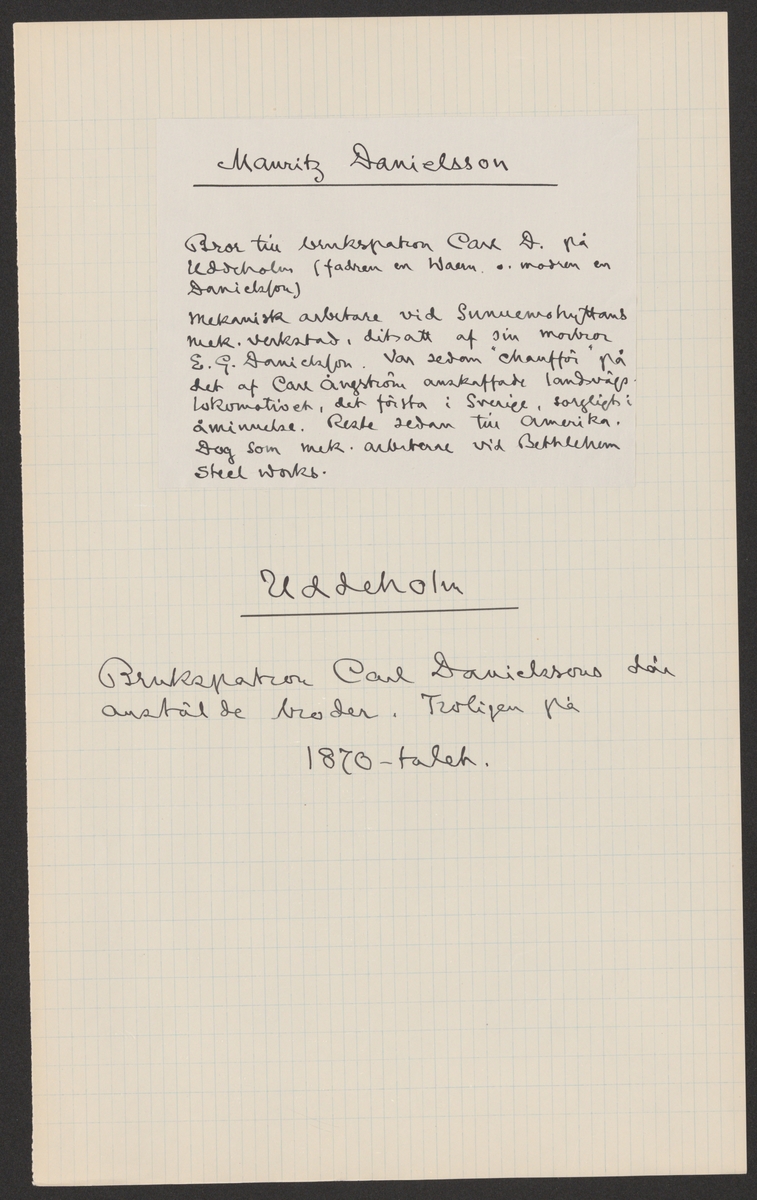 Mauritz Danielsson
Bror till brukspatron Carl D. på
Uddeholm (fadren en Waern. o. modren en
Danielsson)
Mekanisk arbetare vid Sunnemohyttans
mek. verkstad, ditsatt af sin morbror
E. G. Danielsson. Var sedan "chaufför" på
det af Carl Ångström anskaffade landsvägs-
lokomotivet, det första i Sverige, sorgligt i
åminnelse. Reste sedan till Amerika.
Dog som mek. arbetare vid Bethlehem
Steel Works.
Uddeholm
Brukspatron Carl Danielssons där
anstälde broder. Troligen på
1870-talet.